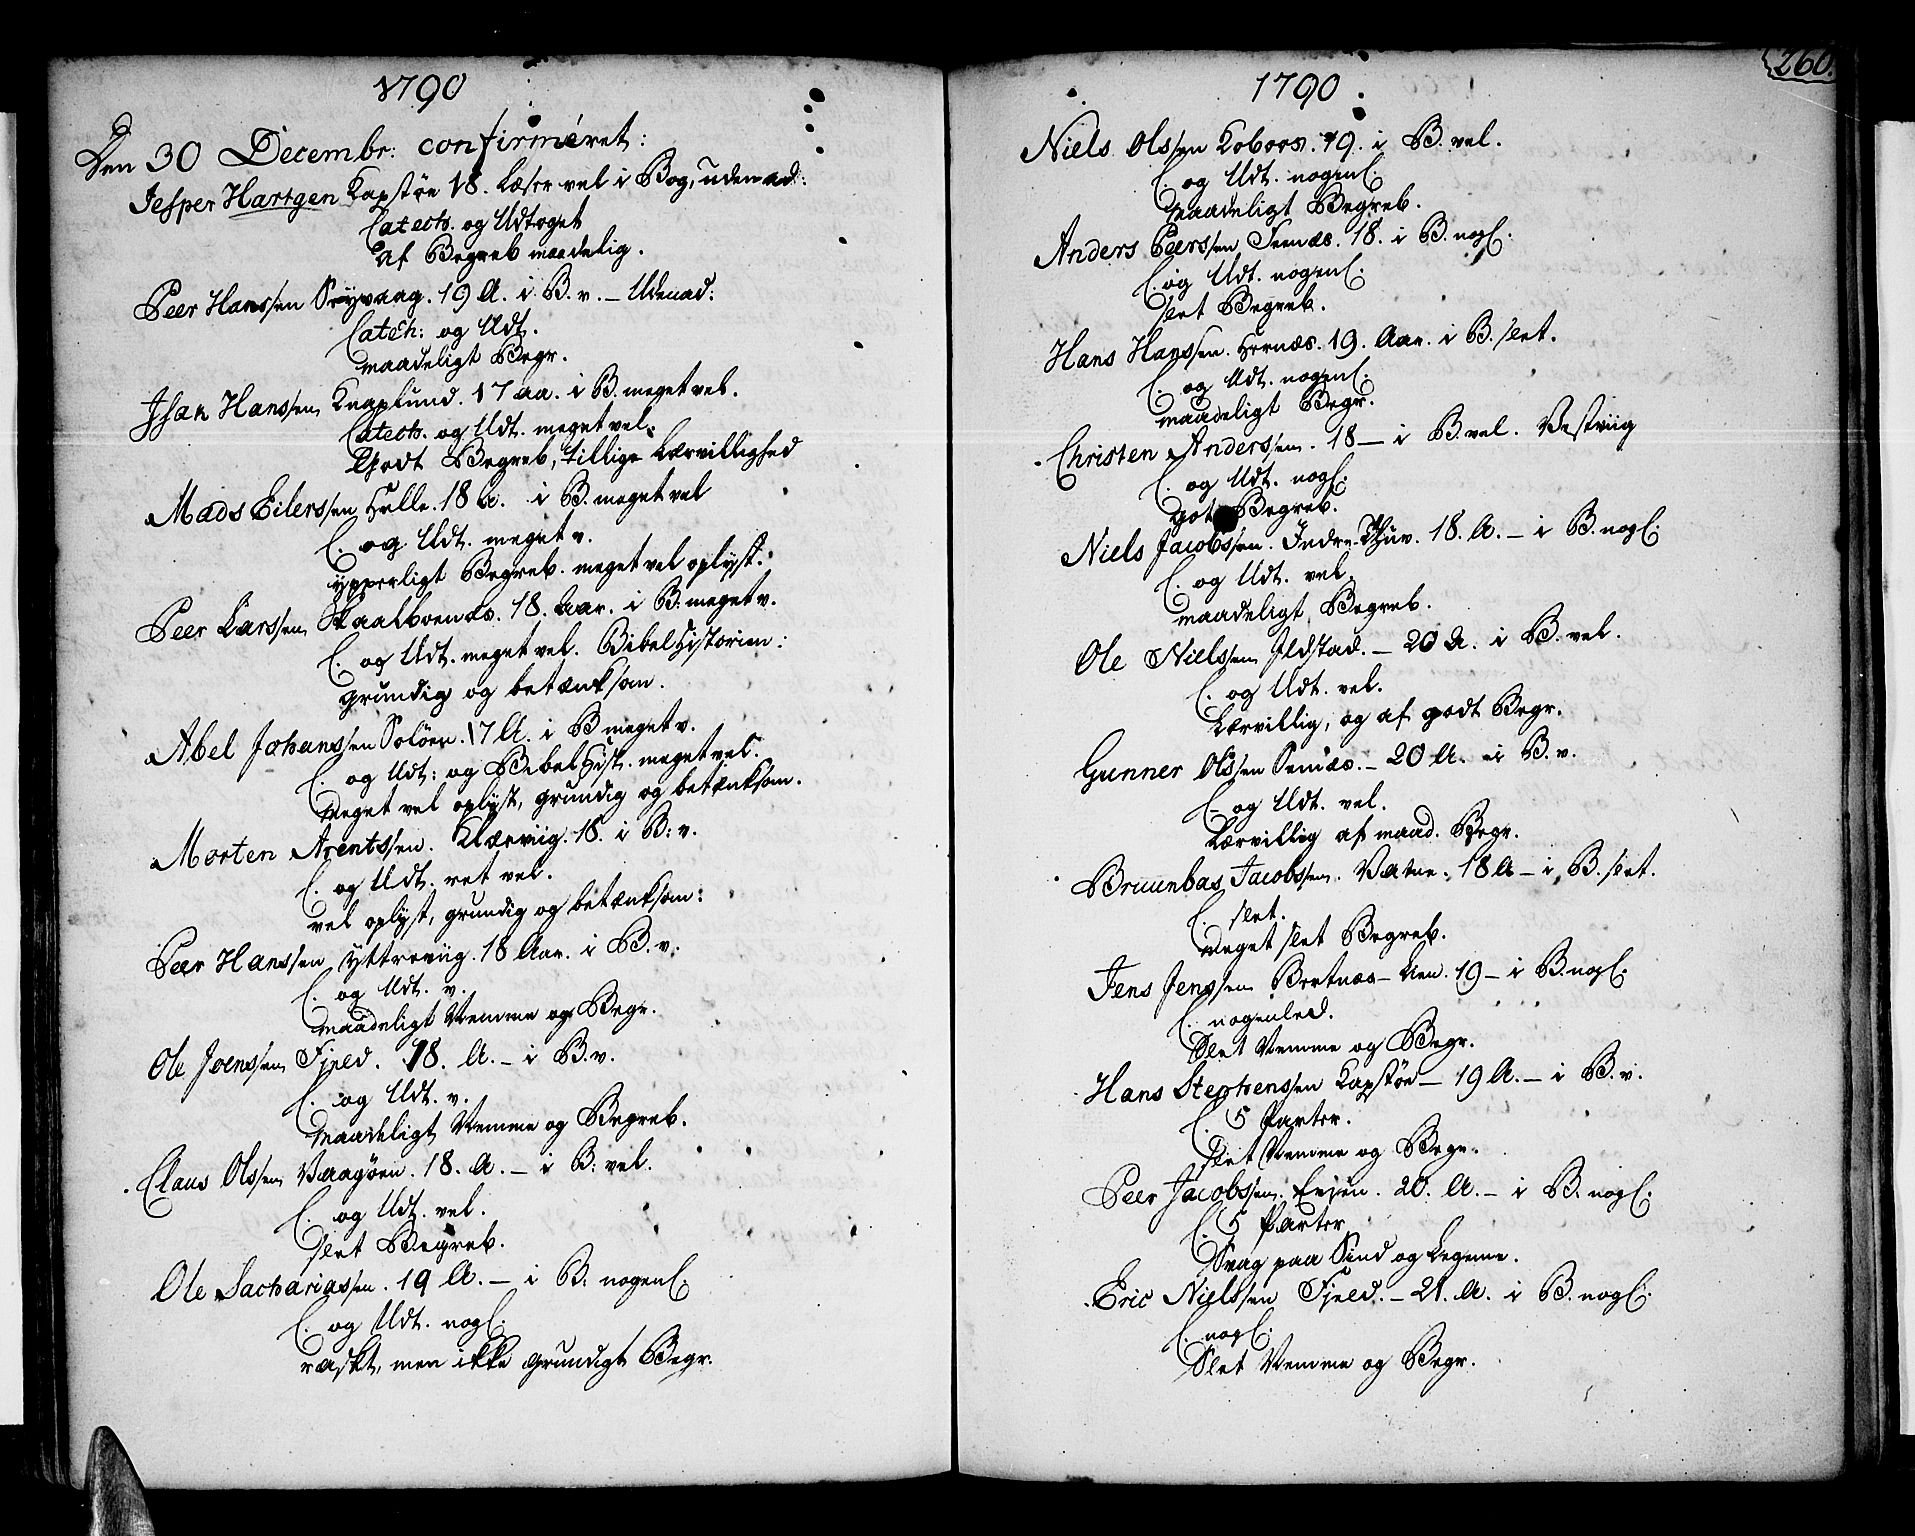 1790
Den 30 Decembr: confirmeret:
Jesper Hartgen Kapstøe 18. Læser vel i Bog, udenad:
Catech. og Udtoget
af Begreb maadelig.
Peer Hanssen 19 A. i B. v. – Udenad:
Catech: og Udt.
maadeligt Begr.
Isak Hanssen Knaplund. 17 aa. i B. meget vel.
Catech. og Udt. meget vel.
Godt Begreb, tillige Lærvillighed
Mads Eilerssen Helle. 18 A. i B. meget vel
C. og Udt. meget v.
ypperligt Begreb. meget vel oplyst:
Peer Larssen Skaalboenæs. 18. Aar. i B. meget v.
C. og Udt. meget vel. Bibel Historien:
grundig og betænksom.
Abel Johanssen Soløen. 17 A. i B meget v.
C. og Udt: og Bibel Hist. meget vel.
Meget vel oplyst, grundig og betænksom.
Morten Arentssen. Klærviig. 18. i B: v.
C. og Udt. ret vel.
vel oplyst, grundig og betænksom:
Peer Hanssen Yttreviig. 18 Aar. i B. v.
C. og Udt. v.
maadeligt Nemme og Begr.
Ole Joenssen Fjeld. 18. A. – i B. v.
C. og Udt. v.
Maadeligt Nemme og Begreb.
Claus Olssen Vaagøen. 18. A. – i B: vel.
C. og Udt. vel.
slet Begreb.
Ole Sachariassen. 19 A. – i B. nogenl.
C. og Udt. nogl.
raskt, men ikke grundigt Begr.
260.
1790.
Niels Olssen 19. i B. vel.
C. og Udt. nogenl.
Maadeligt Begreb.
Anders Peerssen 18. i B. nogl.
C. og Udt. nogenl.
slet Begreb.
Hans Hanssen. Hernæs. 19. Aar. i B. slet.
C. og Udt. nogenl.
maadeligt Begr.
Christen Anderssen. 18 – i B. vel. Vestviig
C. og Udt. nogl.
got Begreb.
Niels Jacobssen. Indre-Thuv. 18. A. – i B. nogl.
C. og Udt. vel.
maadeligt Begreb.
Ole Nielssen Ildstad. – 20 A. i B. vel.
C. og Udt. vel.
Lærvillig, og af godt Begr.
Gunner Olssen – 20 A. – i B. v.
C. og Udt. vel.
Lærvillig af maad. Begr.
Bruunbas Jacobssen. Vatne. 18 A – i B. slet.
C. slet.
Meget slet Begreb.
Jens Jenssen Bertnæs – 19 – i B. nogl.
C. nogenled.
Slet Nemme og Begr.
Hans Stephenssen Kapstøe – 19 A. – i B. v.
C. 5 Parter.
slet Nemme og Begr.
Peer Jacobssen. Evjen. 20. A. – i B. nogl.
C. 5 Parter
Svag paa Sind og Legeme.
Eric Nielssen Fjeld. – 21. A. i B. nogl.
C. nogl.
Slet Nemme og Begr.